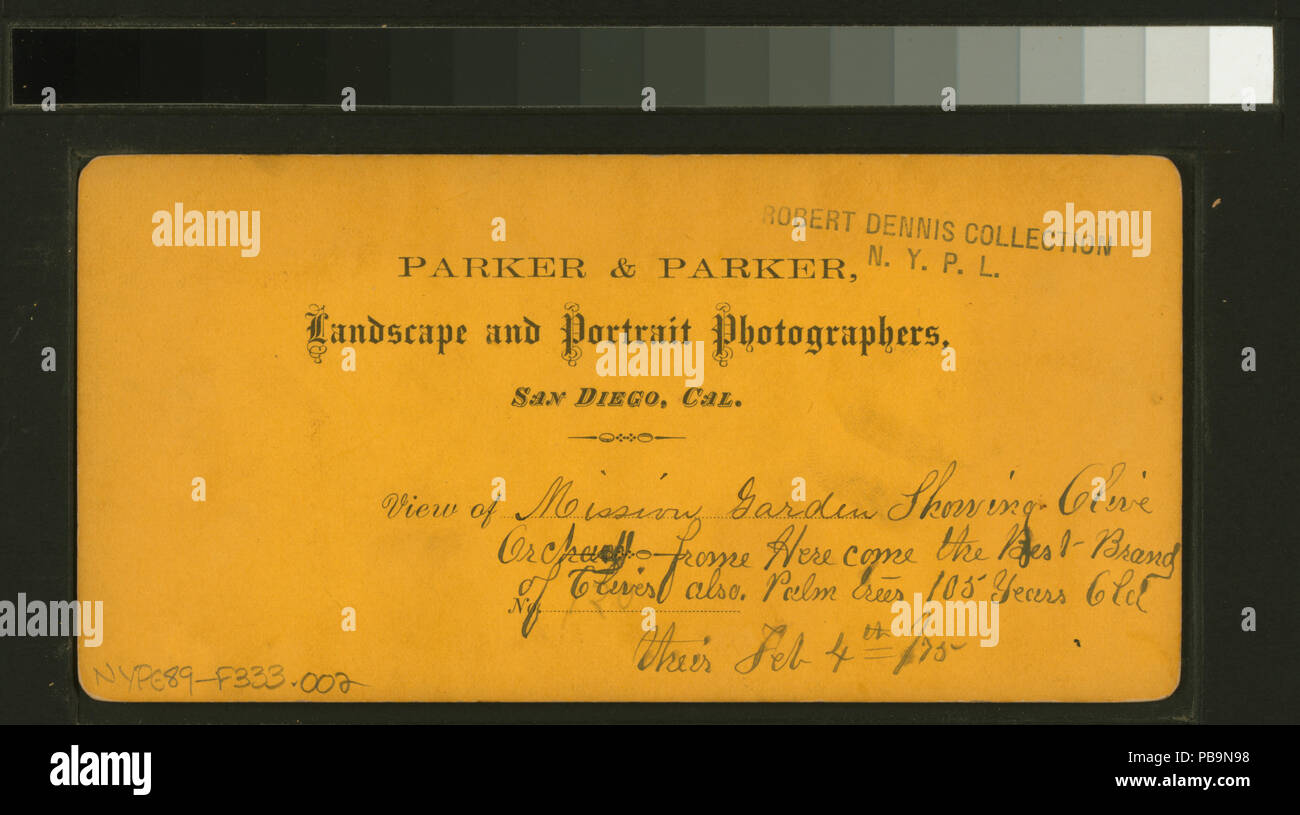 ROBERT DENNIS COLLECTION
N. Y. P. L.
PARKER & PARKER,
Landscape and Portrait Photographers,
SAN DIEGO, CAL.
View of Mission Garden Showing Olive
Orchard frome Here come the Best Brand
of Olives also. Palm trees 105 Years Old
No.
theis Feb 4th /75
NYPG89-F333.002
alamy
alamy
a
a
a
a
a
alamy
alamy
alamy
Image ID: PB9N98
www.alamy.com